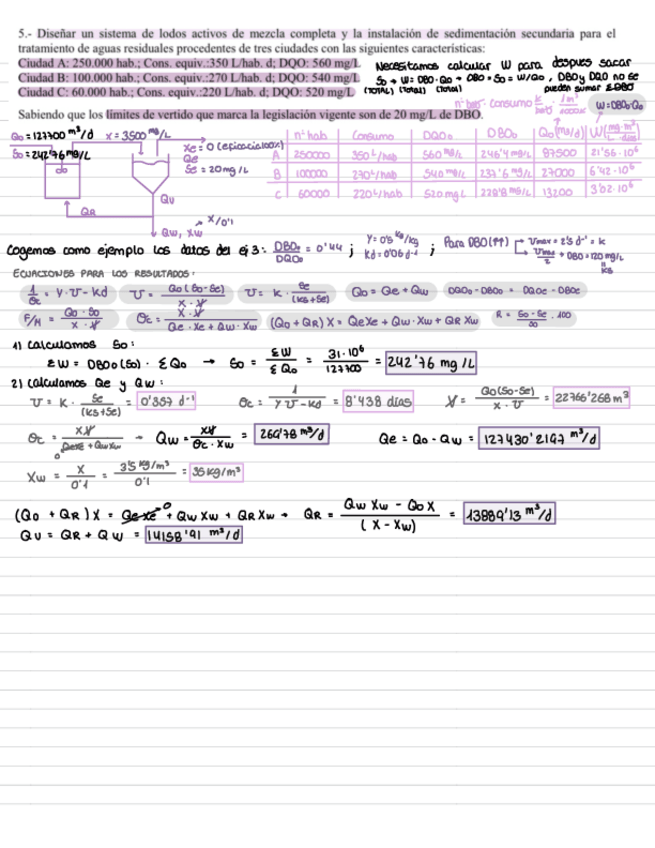 5.- Diseñar un sistema de lodos activos de mezcla completa y la instalación de sedimentación secundaria para el
tratamiento de aguas residuales procedentes de tres ciudades con las siguientes características:
Ciudad A: 250.000 hab.; Cons. equiv.:350 L/hab. d; DQO: 560 mg/L
Ciudad B: 100.000 hab.; Cons. equiv.:270 L/hab. d; DQO: 540 mg/L
Ciudad C: 60.000 hab.; Cons. equiv.:220 L/hab. d; DQO: 520 mg/L
Necesitamos calcular W para después sacar
So → W = DBO · Qo → DBO = So = W/Qo, DBO y DQO no se
(TOTAL) (TOTAL) (TOTAL) pueden sumar ΣDBO
Sabiendo que los límites de vertido que marca la legislación vigente son de 20 mg/L de DBO.
W = DBOo·Qo
Qo = 127700 m³/d X = 3500 mg/L
So = 242'76 mg/L
Xe = 0
Qe
Se = 20 mg/L
Qu
QR
X/0'1
Qw, Xw
nº hab Consumo DQOo DBOo Qo (m³/d)
A 250000 350 L/hab 560 mg/L 246'4 mg/L 87500 21'56·10⁶
B 100000 270 L/hab 540 mg/L 237'6 mg/L 27000 6'42·10⁶
C 60000 220 L/hab 520 mg/L 228'8 mg/L 13200 3'02·10⁶
Cogemos como ejemplo los datos del ej 3: DBOo/DQOo = 0'44 ; Y = 0'5 kg/kg Kd = 0'06 d⁻¹ ; Para DBO(↑↑) Vmax = 2'5 d⁻¹ = k Vmax/2 → DBO = 120 mg/L = ks
ECUACIONES PARA LOS RESULTADOS:
1/θc = Y · U - Kd U = Qo(So-Se)/X·V U = K · Se/(Ks+Se) Qo = Qe + Qw DQOo - DBOo = DQOe - DBOe
F/M = Qo·So/X·V θc = X·V/Qe·Xe + Qw·Xw (Qo + QR) X = QeXe + Qw·Xw + QR Xw R = So-Se/So · 100
1) Calculamos So:
ΣW = DBOo (So) · ΣQo → So = ΣW/ΣQo = 31·10⁶/127700 = 242'76 mg/L
2) Calculamos Qe y Qw:
U = K · Se/(Ks+Se) = 0'357 d⁻¹ θc = 1/YU-Kd = 8'438 días V = Qo(So-Se)/X·U = 22766'268 m³
θc = XV/QeXe + QwXw → Qw = XV/θc·Xw = 269'78 m³/d Qe = Qo - Qw = 127430'2197 m³/d
Xw = X/0'1 = 3'5 kg/m³/0'1 = 35 kg/m³
(Qo + QR) X = QeXe + QwXw + QRXw → QR = QwXw - QoX/(X - Xw) = 13889'13 m³/d
Qu = QR + Qw = 14158'91 m³/d